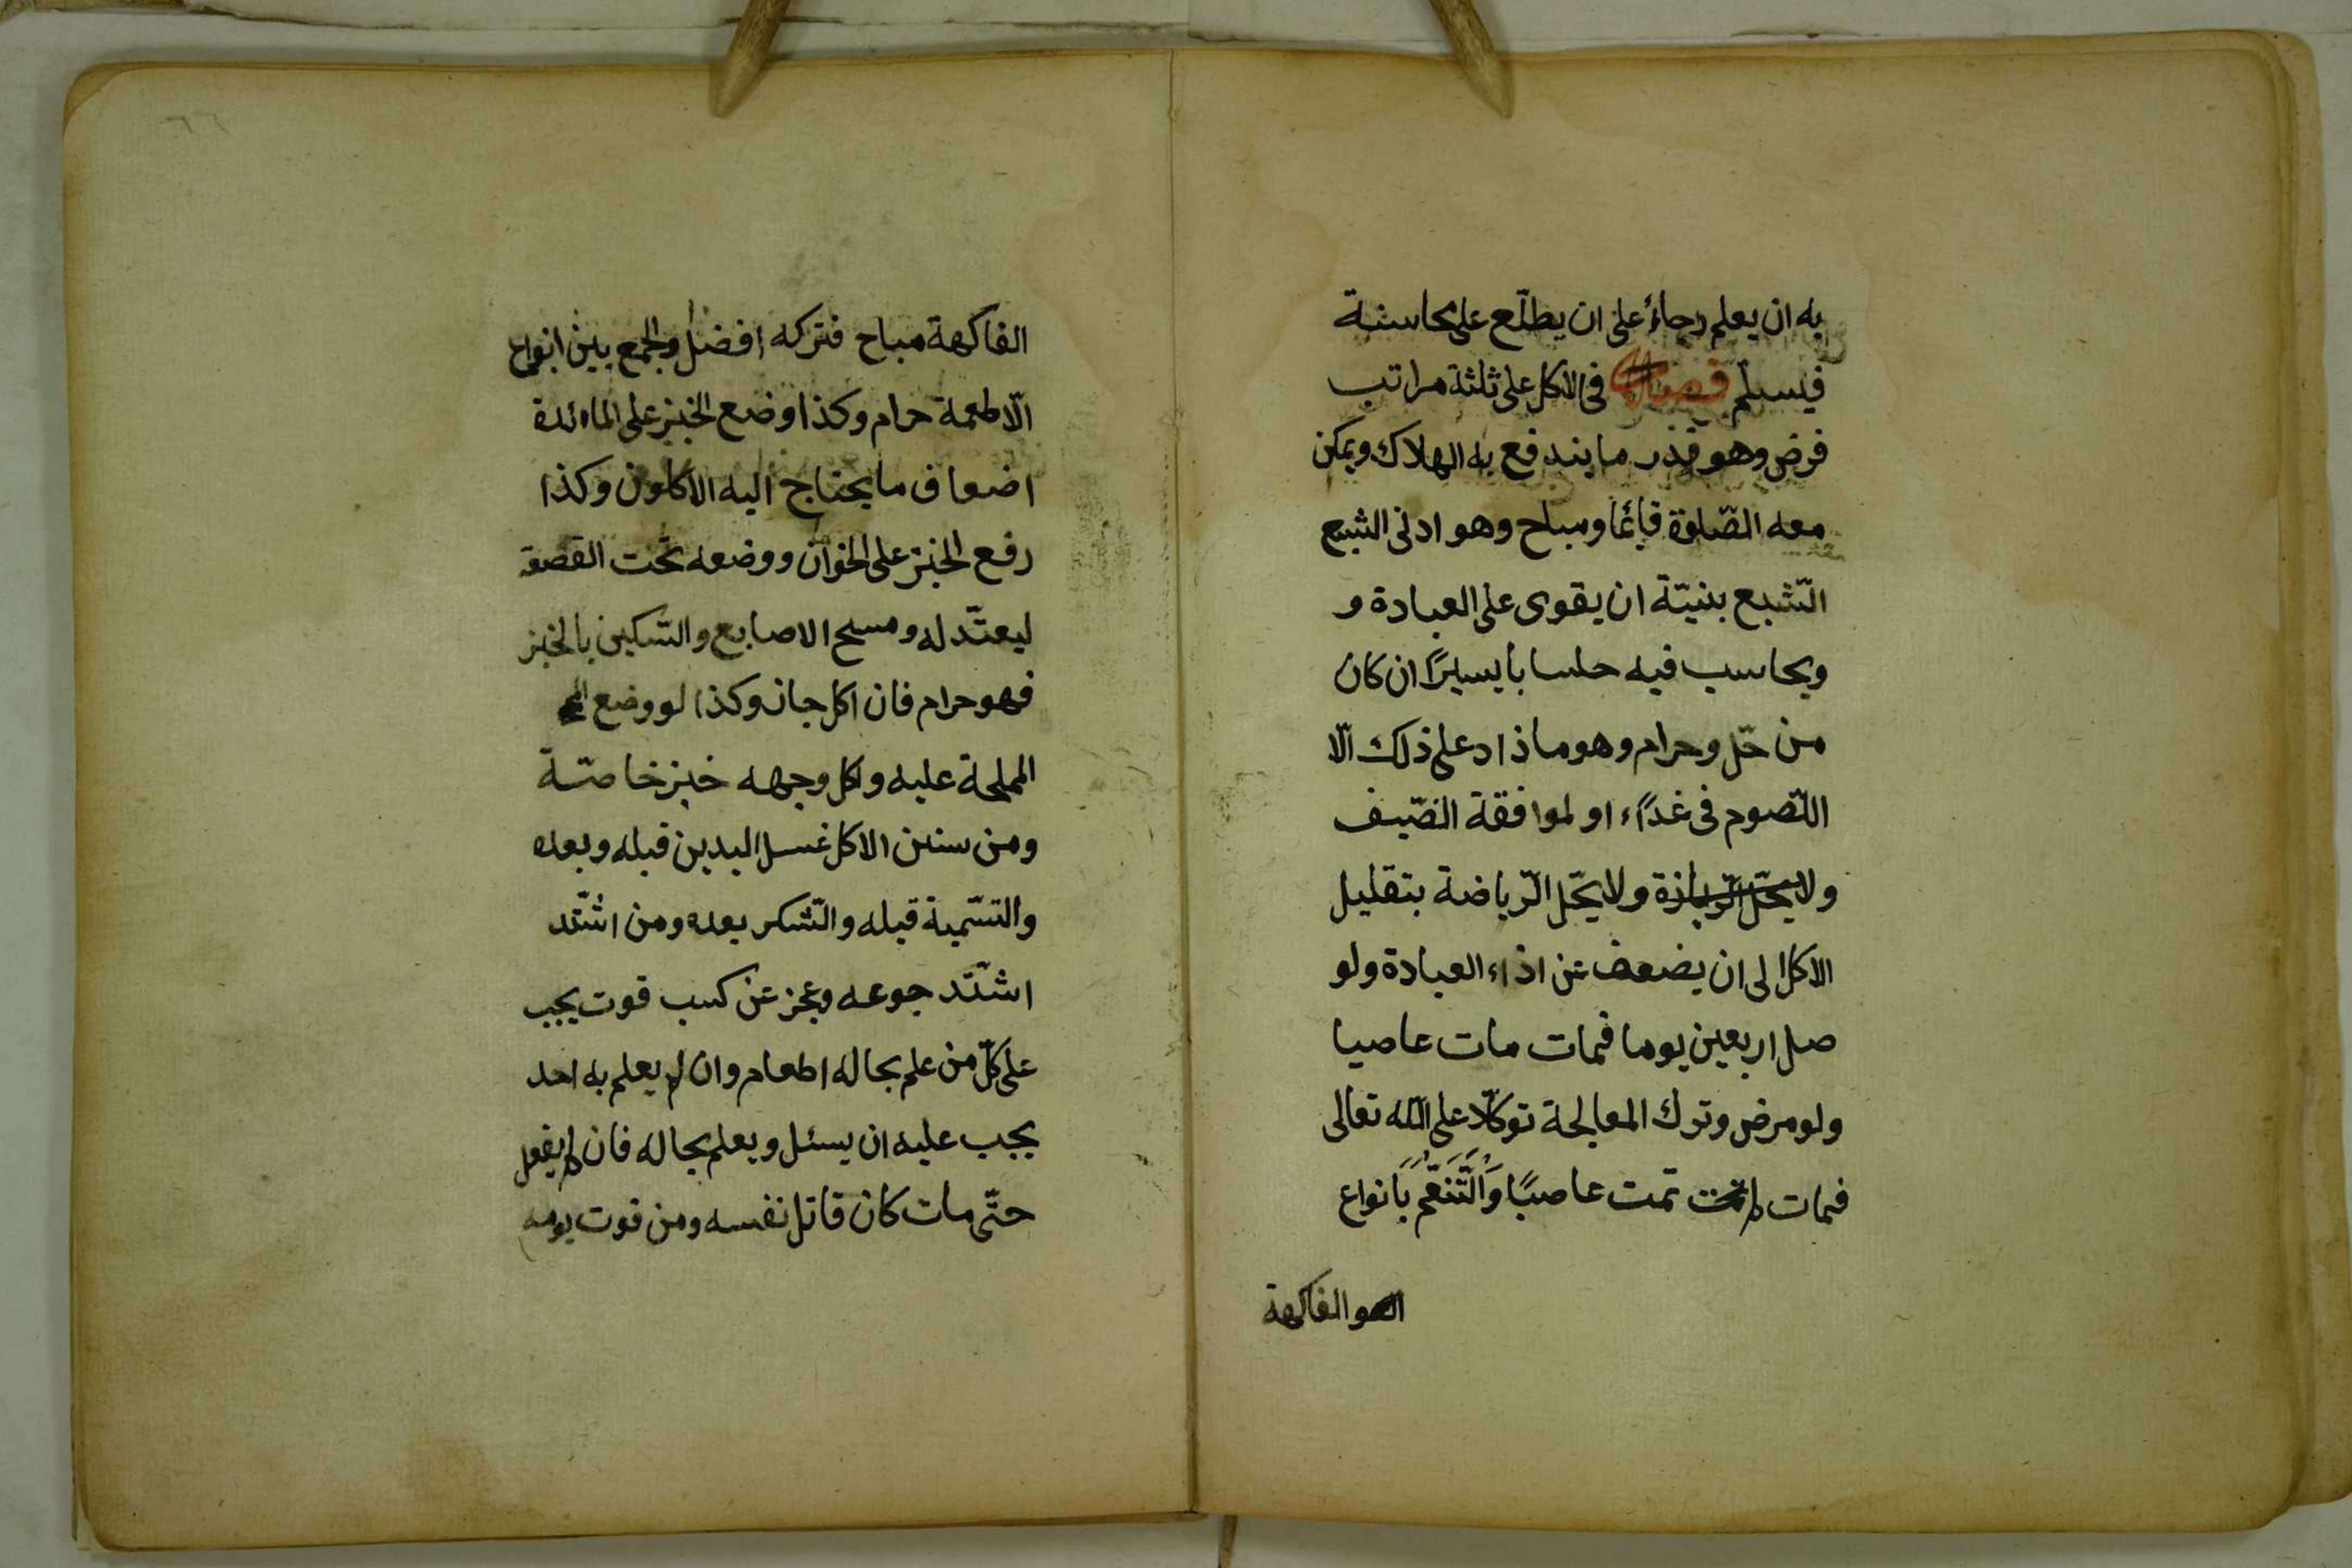 به ان يعلم رجاءً على ان يطلّع على محاسنة
فيسلم فصل فى الاكل على ثلثة مراتب
فرض وهو قدر ما يندفع به الهلاك ويمكن
معه الصّلوة قائما ومباح وهو ادنى الشبع
الشّبع بنيّة ان يقوى على العبادة و
ويحاسب فيه حسابا يسيرًا ان كان
من حّل وحرام وهو ما ذاد على ذلك الّا
للتصوم فى غداًء او لموافقة الضّيف
ولا يحّل الرّياذة ولا يحّل الرّياضة بتقليل
الاكل الى ان يضعف عن اذاء العبادة ولو
صل اربعين يوما فمات مات عاصيا
ولو مرض وترك المعالجة توكلّا على اللّه تعالى
فمات لم تمت عاصيًا وَالتَّنَعُّمُ بَانواع
الفاكهة
الفاكهة مباح فتركه افضل والجمع بين انواع
الّاطعمة حرام وكذا وضع الخبز على المائدة
اضعاف ما يحتاج اليه الاكلون وكذا
رفع الخبز على الخوان ووضعه تحت القصعة
ليعتّدله ومسح الاصابع والسّكين بالخبز
فهو حرام فان اكل جاز وكذا لو وضع
المملحة عليه واكل وجهه خبز خاصّة
ومن سنن الاكل غسل اليدين قبله وبعده
والتسّمية قبله والشّكر بعده ومن اشّتد
اشّتد جوعه وعجز عن كسب قوت يجب
على كلّ من علم بحاله اطعام وان لم يعلم به احد
يجب عليه ان يسئل ويعلم بحاله فان لم يفعل
حتّى مات كان قاتل نفسه ومن قوت يومه